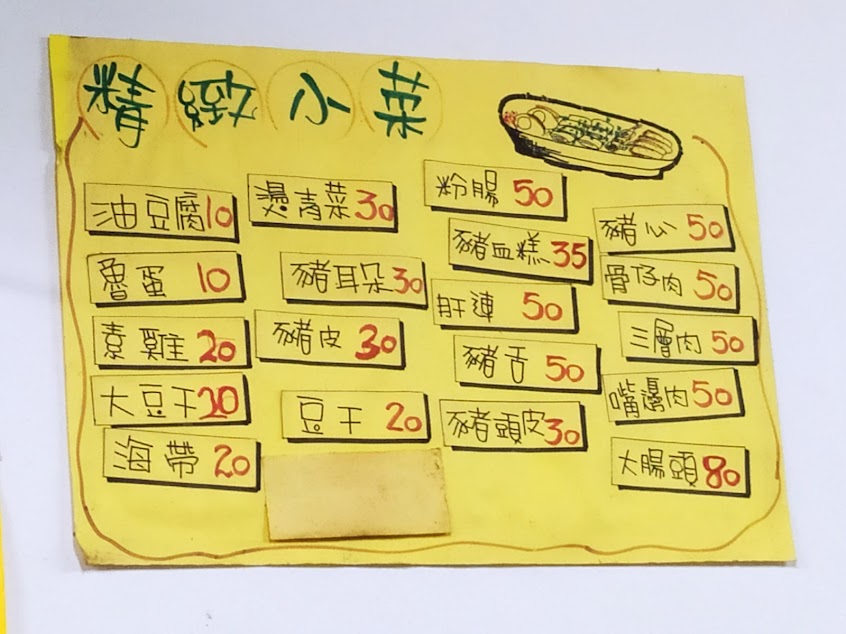 精緻小菜
油豆腐10
魯蛋 10
素雞 20
大豆干20
海帶 20
燙青菜30
豬耳朵30
豬皮 30
豆干 20
粉腸 50
豬血糕35
肝連 50
豬舌 50
豬頭皮30
豬心 50
骨仔肉50
三層肉50
嘴邊肉50
大腸頭80